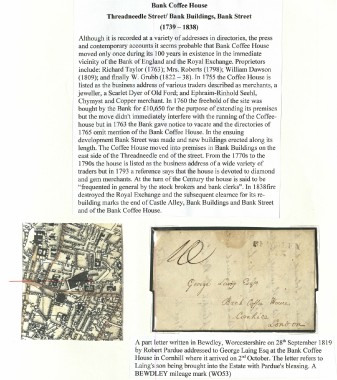 Bank Coffee House
Threadneedle Street/ Bank Buildings, Bank Street
(1739 – 1838)
Although it is recorded at a variety of addresses in directories, the press
and contemporary accounts it seems probable that Bank Coffee House
moved only once during its 100 years in existence in the immediate
vicinity of the Bank of England and the Royal Exchange. Proprietors
include: Richard Taylor (1763); Mrs. Roberts (1798); William Dawson
(1809); and finally W. Grubb (1822 – 38). In 1755 the Coffee House is
listed as the business address of various traders described as merchants, a
jeweller, a Scarlet Dyer of Old Ford; and Ephraim-Rinhold Seehl,
Chymyst and Copper merchant. In 1760 the freehold of the site was
bought by the Bank for £10,650 for the purpose of extending its premises
but the move didn't immediately interfere with the running of the Coffee-
house but in 1763 the Bank gave notice to vacate and the directories of
1765 omit mention of the Bank Coffee House. In the ensuing
development Bank Street was made and new buildings erected along its
length. The Coffee House moved into premises in Bank Buildings on the
east side of the Threadneedle end of the street. From the 1770s to the
1790s the house is listed as the business address of a wide variety of
traders but in 1793 a reference says that the house is devoted to diamond
and gem merchants. At the turn of the Century the house is said to be
"frequented in general by the stock brokers and bank clerks". In 1838fire
destroyed the Royal Exchange and the subsequent clearance for its re-
building marks the end of Castle Alley, Bank Buildings and Bank Street
and of the Bank Coffee House.
George Laing Esqr
Bank Coffee House
Cornhill
London
A part letter written in Bewdley, Worcestershire on 28th September 1819
by Robert Pardue addressed to George Laing Esq at the Bank Coffee
House in Cornhill where it arrived on 2nd October. The letter refers to
Laing's son being brought into the Estate with Pardue's blessing. A
BEWDLEY mileage mark (WO53)